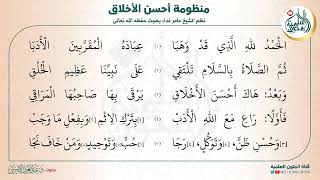 منظومة أحسن الأخلاق
نظم الشيخ عامر فداء بهجت حفظه الله تعالى
الْحَمْدُ لِلَّهِ الَّذِي قَدْ وَهَبَا (١) عِبَادَهُ الْمُقَرَّبِينَ الْأَدَبَا
ثُمَّ الصَّلَاةُ بِالسَّلَامِ تَلْتَقِي (٢) عَلَى نَبِيِّنَا عَظِيمِ الْخُلُقِ
وَبَعْدُ: هَاكَ أَحْسَنَ الْأَخْلَاقِ (٣) يَرْقَى بِهَا صَاحِبُهَا الْمَرَاقِي
فَأَوَّلًا: رَاعِ مَعَ اللَّهِ الْأَدَبْ (٤) بِتَرْكِ الِاثْمِ، وَبِفِعْلِ مَا وَجَبْ
وَحُسْنِ ظَنٍّ، وَتَوَكُّلٍ، رَجَا (٥) حُبٍّ، وَتَوْحِيدٍ، وَمَنْ خَافَ نَجَا
قناة المتون العلمية